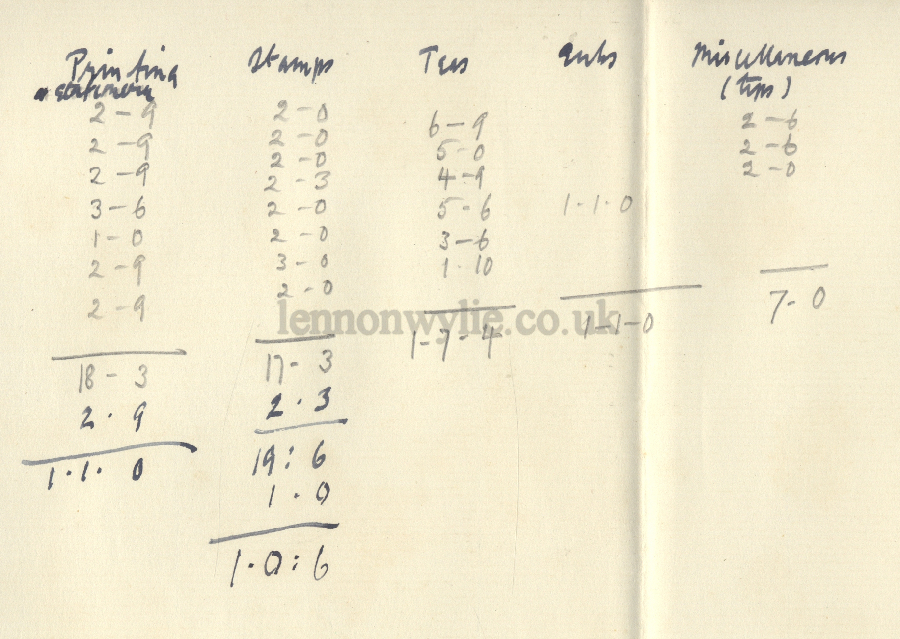 Printing
& stationery
2-9
2-9
2-9
3-6
1-0
2-9
2-9
18-3
2.9
1.1.0
Stamps
2-0
2-0
2-0
2-3
2-0
2-0
3-0
2-0
17-3
2.3
19:6
1.0
1.0:6
Teas
6-9
5-0
4-9
5-6
3-6
1-10
1-7-4
Subs
1-1-0
1-1-0
Miscellaneous
(tips)
2-6
2-6
2-0
7-0
lennonwylie.co.uk